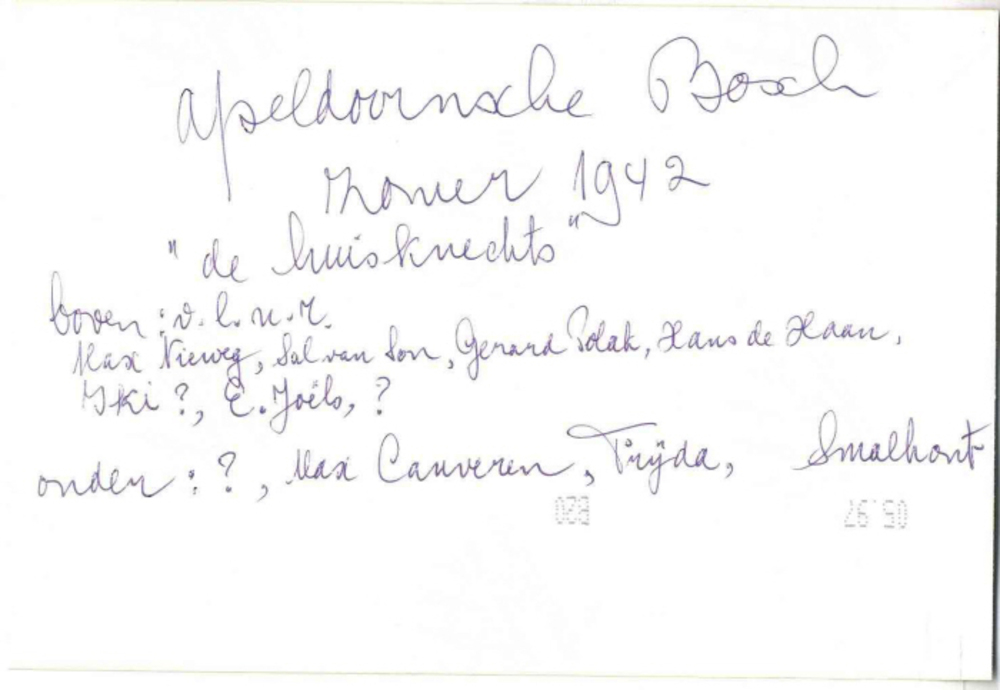 Apeldoornsche Bosch
zomer 1942
"de huisknechts"
boven: v.l.n.r.
Max Nieweg, Sal van Son, Gerard Polak, Hans de Haan,
Iki ?, E. Joëls, ?
onder: ?, Max Cauveren, Frijda, Smalhout
020
05.97